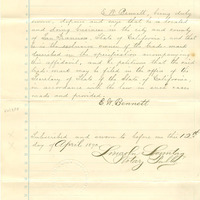 E. W. Bennett, being duly
sworn, deposes and says that he is a resident
and doing business in the city and county
of San Francisco State of California; and that
he is the exclusive owner of the trade mark
described in the specification accompanying
this affidavit, and he petitions that the said
trade mark may be filed in the office of the
Secretary of State of the State of California,
in accordance with the law in such cases
made and provided.
E. W. Bennett
Subscribed and sworn to before me this 12th
day of April
Notary Public